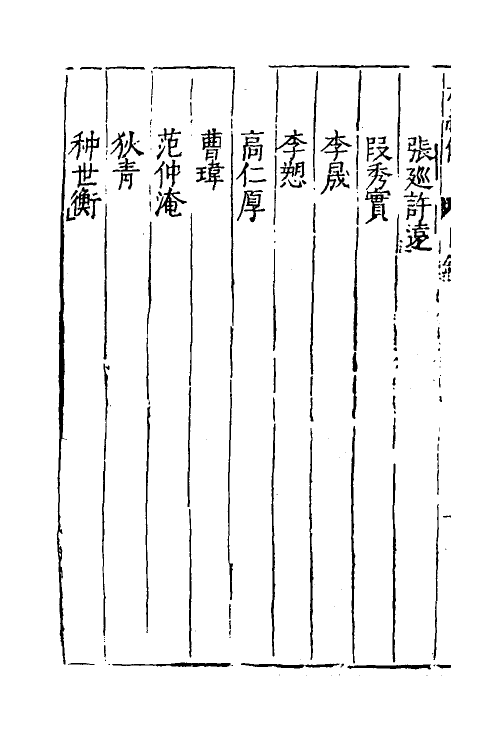 張廵許遠
段秀實
李晟
李愬
高仁厚
曹瑋
范仲淹
狄青
种世衡